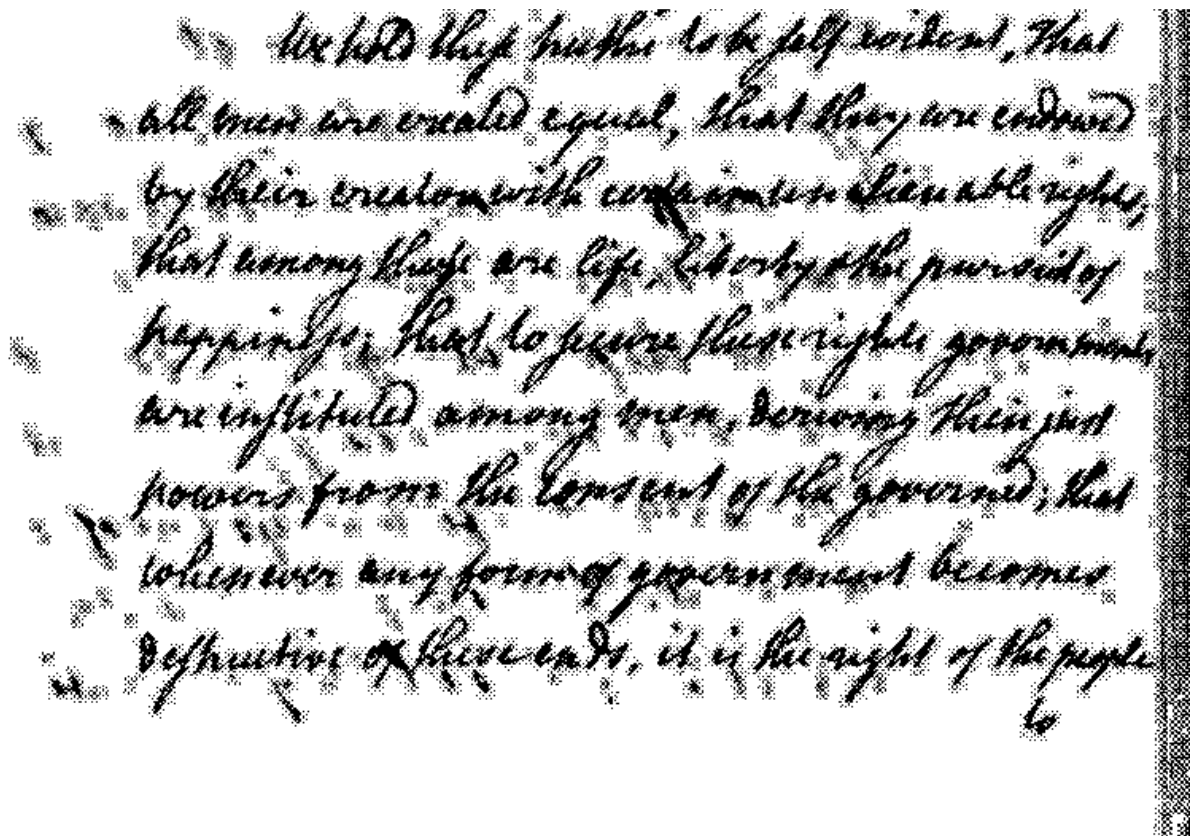 We hold these truths to be self evident, that
all men are created equal, that they are endowed
by their creator with certain unalienable rights,
that among these are life, liberty & the pursuit of
happiness; that to secure these rights governments
are instituted among men, deriving their just
powers from the consent of the governed; that
whenever any form of government becomes
destructive of these ends, it is the right of the people
to